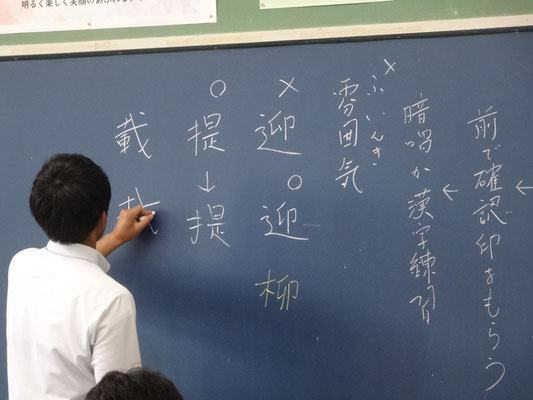 明るく楽しく笑顔のあふれる
← 前で確認印をもらう
← 暗唱か漢字練習
× ふいんき
雰囲気
× 迎 ○ 迎 柳
○ 提 ↓ 提
載